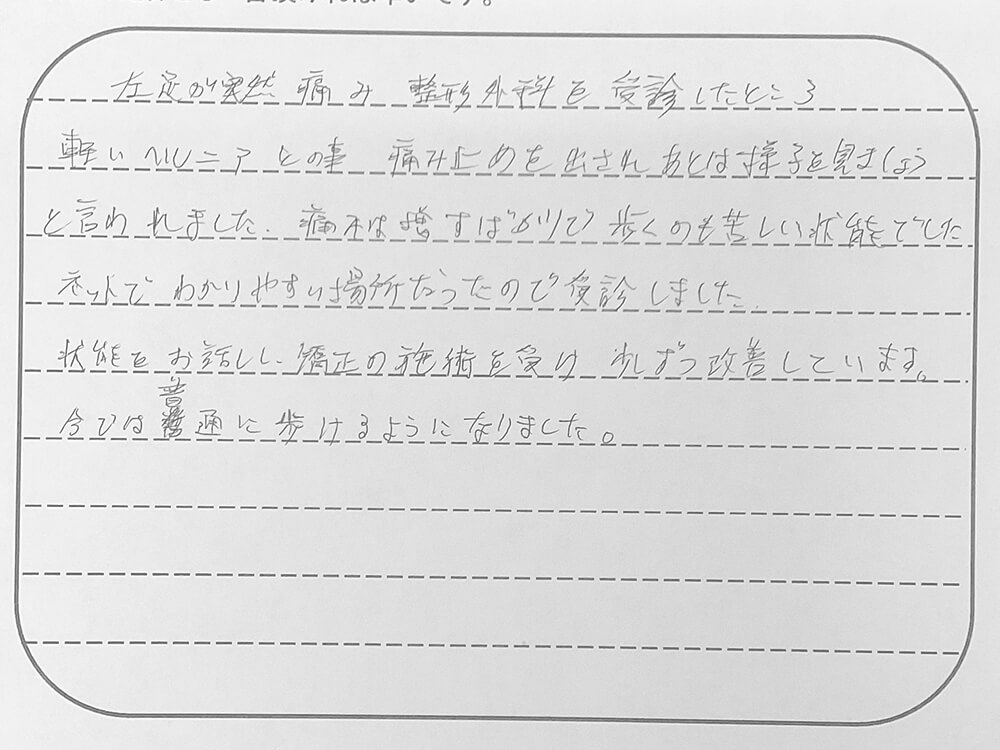 左足が突然痛み 整形外科を受診したところ
軽いヘルニアとの事 痛み止めを出されあとは様子を見ましょう
と言われました。痛みは増すばかりで歩くのも苦しい状態でした
ネットでわかりやすい場所だったので受診しました。
状態をお話しし、矯正の施術を受け 少しずつ改善しています。
普
今では 通に歩けるようになりました。